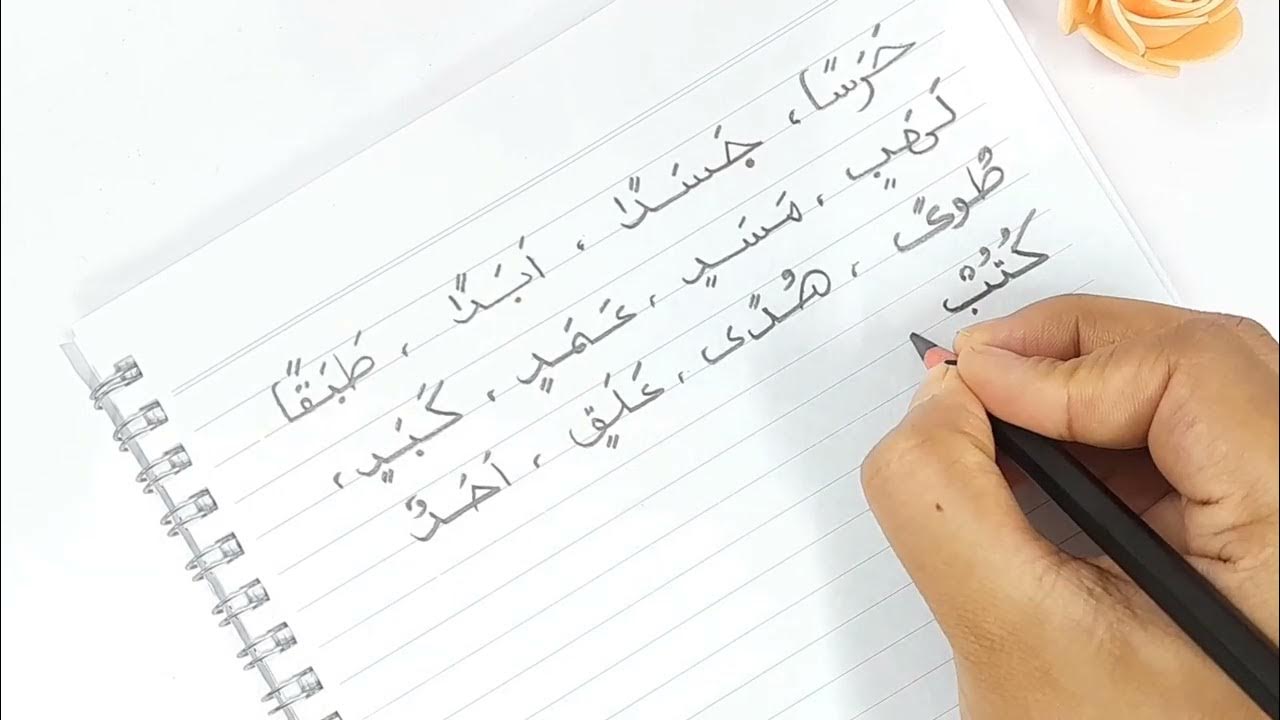 حَرَسًا، جَسَدًا، اَبَدًا، طَبَقًا
لَهَبٍ، مَسَدٍ، عَمَدٍ، كَبَدٍ،
طُوًى، هُدًى، عَلَقٍ، اَحَدٌ
كُتُبٌ